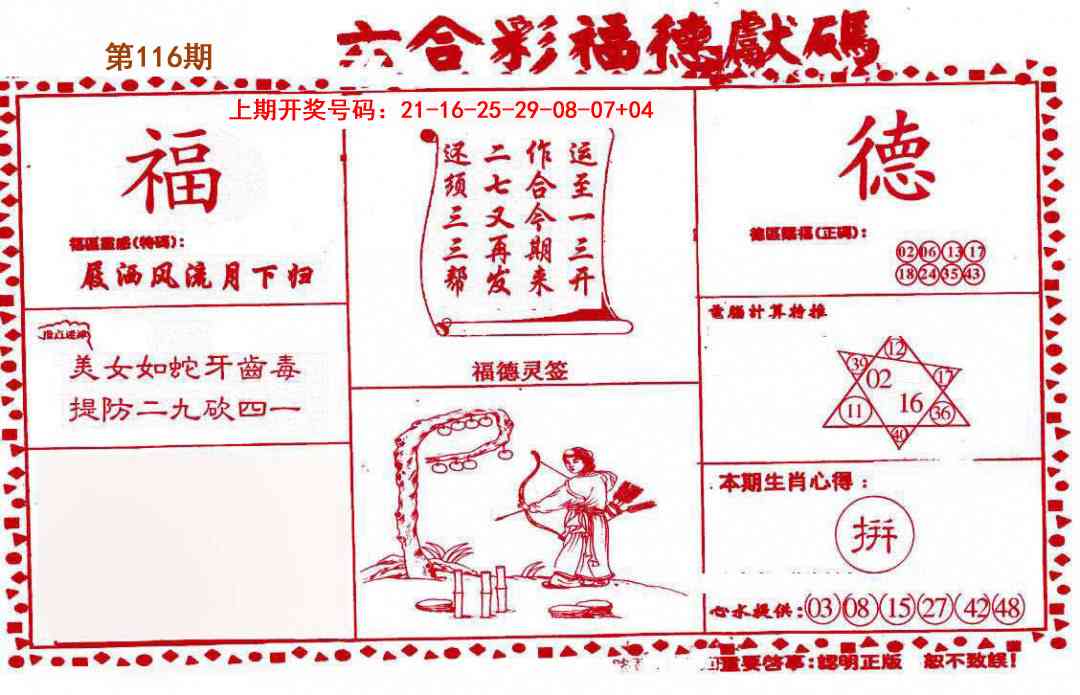 第116期
六合彩福德獻碼
上期开奖号码：21-16-25-29-08-07+04
福
福區靈感(特碼)：
屐洒风流月下归
美女如蛇牙齒毒
提防二九砍四一
运至一三开
作合今期来
二七又再发
还须三三帮
福德灵签
德
德區賜福(正碼)：
02 06 13 17
18 24 35 43
電腦計算特推
12
39 02 17
11 16 36
40
本期生肖心得：
拚
心水提供：03 08 15 27 42 48
重要啓事：認明正版 恕不致誤！